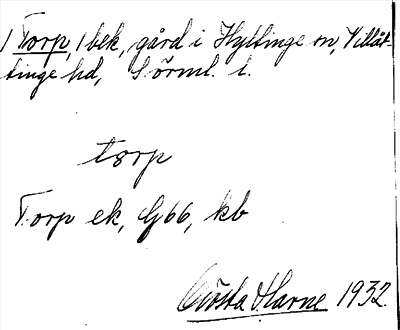 1 Torp, 1 bek, gård i Hyltinge sn, Villåt-
tinge hd, Sörml. l.
torp
Torp ek, G66, kb
Gösta Harne 1932.